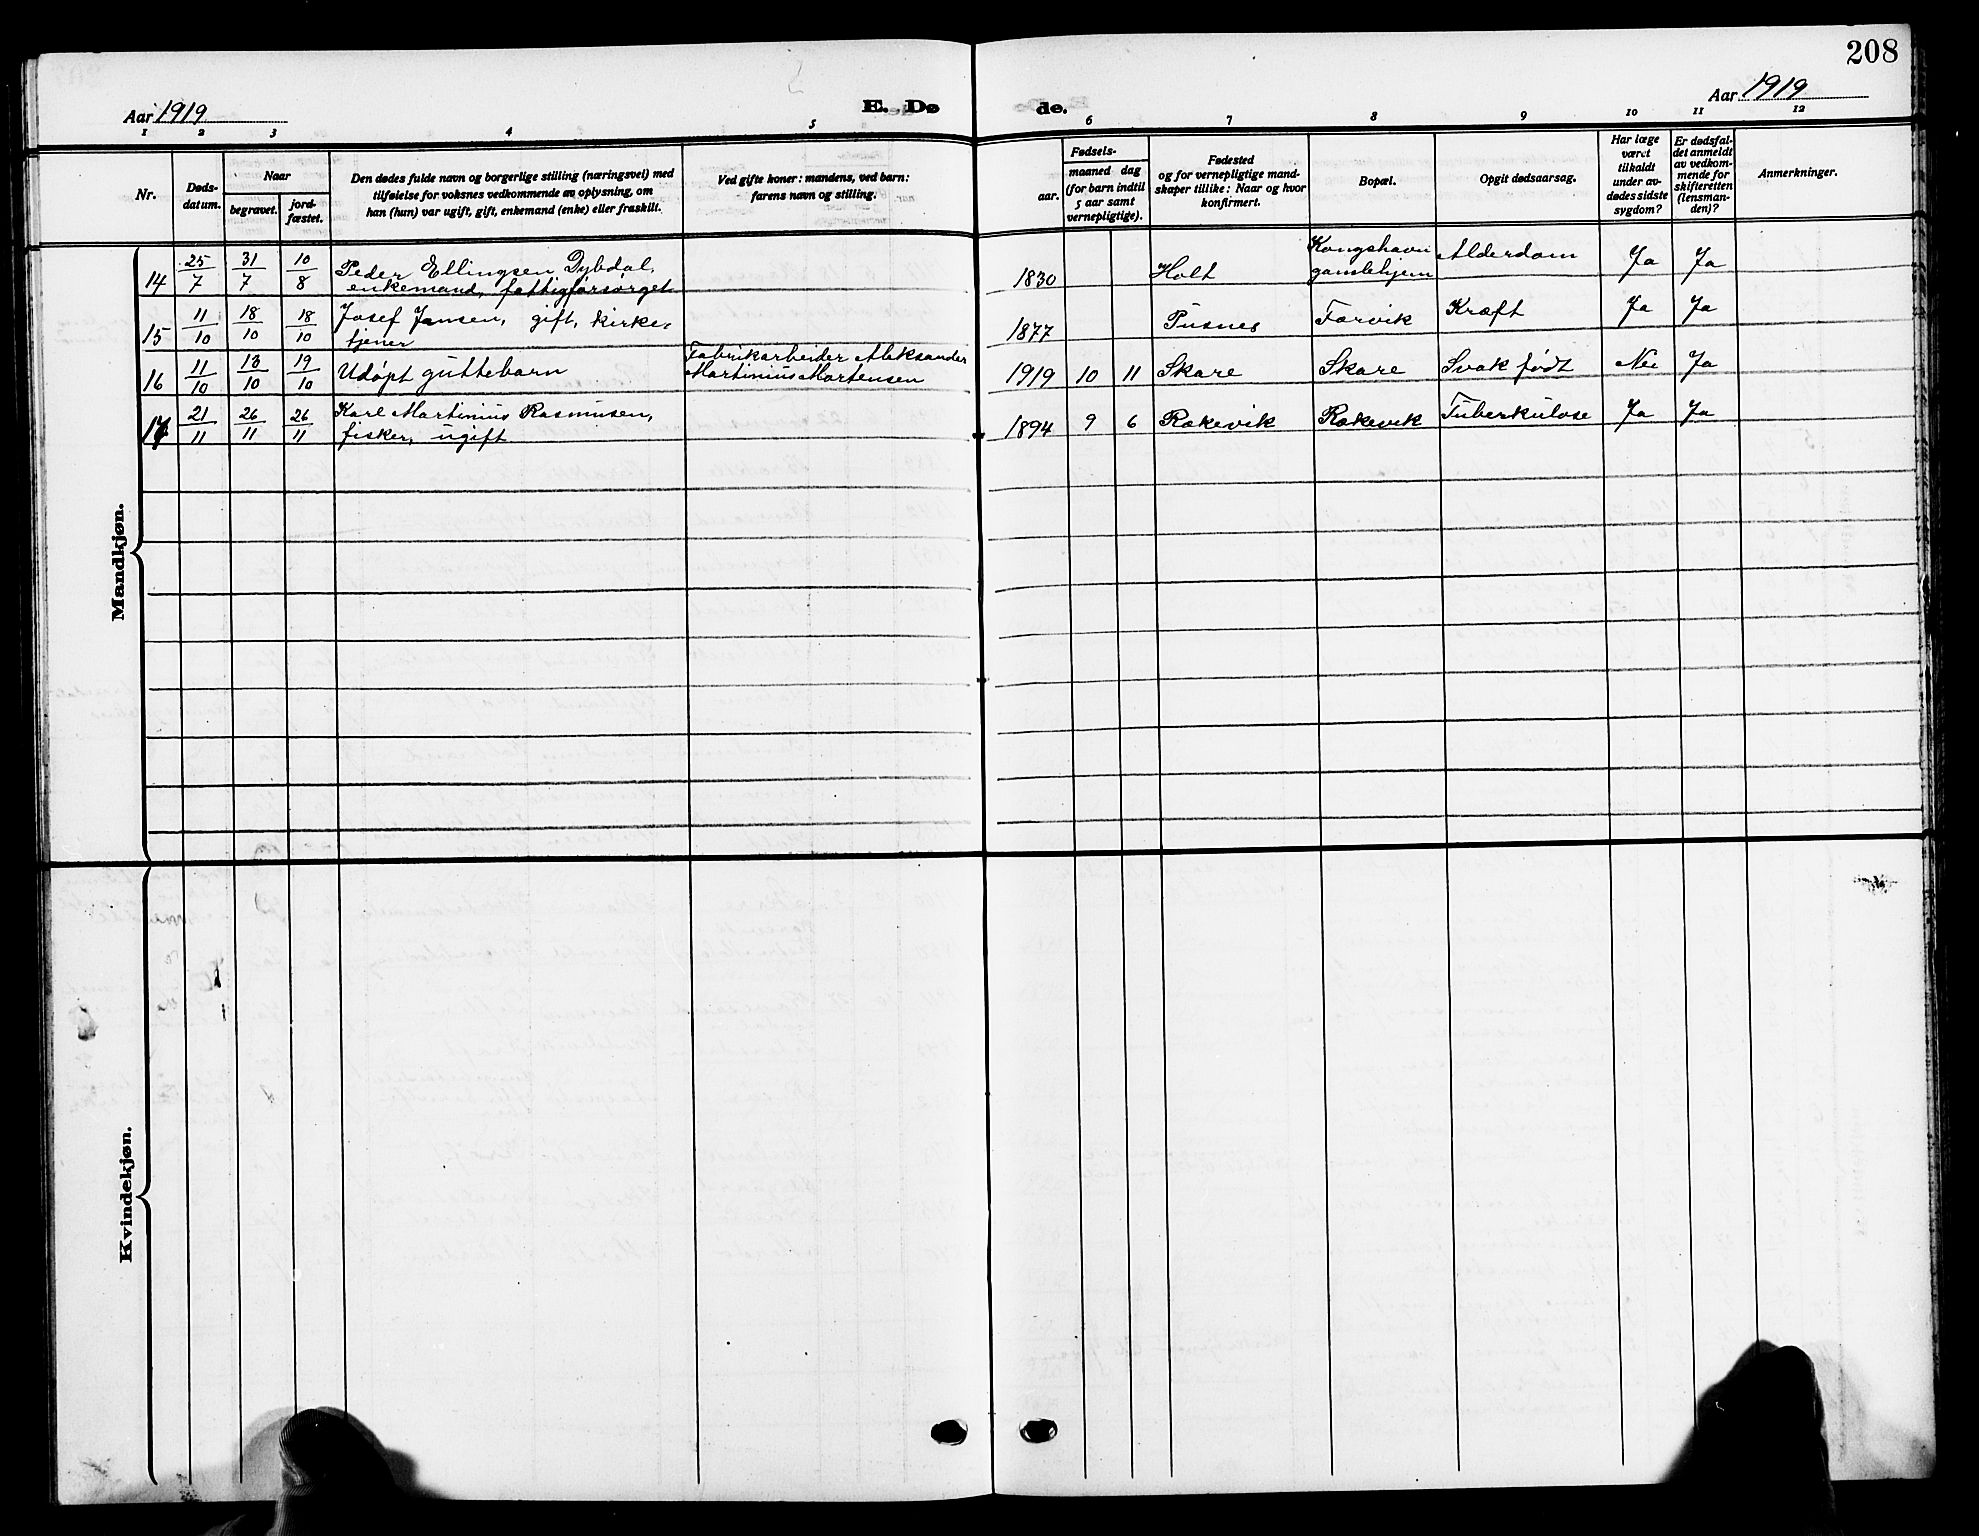 208
Aar 1919
E. Døde.
Aar 1919
1 2 3 4 5 6 7 8 9 10 11 12
Nr.
Døds-
datum.
Naar
begravet.
jord-
fæstet.
Den dødes fulde navn og borgerlige stilling (næringsvei) med
tilføielse for voksnes vedkommende av oplysning, om
han (hun) var ugift, gift, enkemand (enke) eller fraskilt.
Ved gifte koner: mandens, ved barn:
farens navn og stilling.
Fødsels-
aar.
maaned dag
(for barn indtil
5 aar samt
vernepligtige).
Fødested
og for vernepligtige mand-
skaper tillike: Naar og hvor
konfirmert.
Bopæl.
Opgit dødsaarsag.
Har læge
været
tilkaldt
under av-
dødes sidste
sygdom?
Er dødsfal-
det anmeldt
av vedkom-
mende for
skifteretten
(lensman-
den)?
Anmerkninger.
Mandkjøn.
14 25/7 31/7 10/8 Peder Ellingsen Dybdal,
enkemand, fattigforsørget
1830 Holt Kongshavn
gamlehjem
Alderdom Ja Ja
15 11/10 18/10 18/10 Josef Jansen, gift, kirke-
tjener
1877 Pusnes Færvik Kræft Ja Ja
16 11/10 13/10 19/10 Udøpt guttebarn
Fabrikarbeider Aleksander
Martinius Mortensen
1919 10 11 Skare Skare Svak født Nei Ja
17 21/11 26/11 26/11 Karl Martinius Rasmusen,
fisker, ugift
1894 9 6 Rækevik Rækevik Tuberkulose Ja Ja
Kvindekjøn.